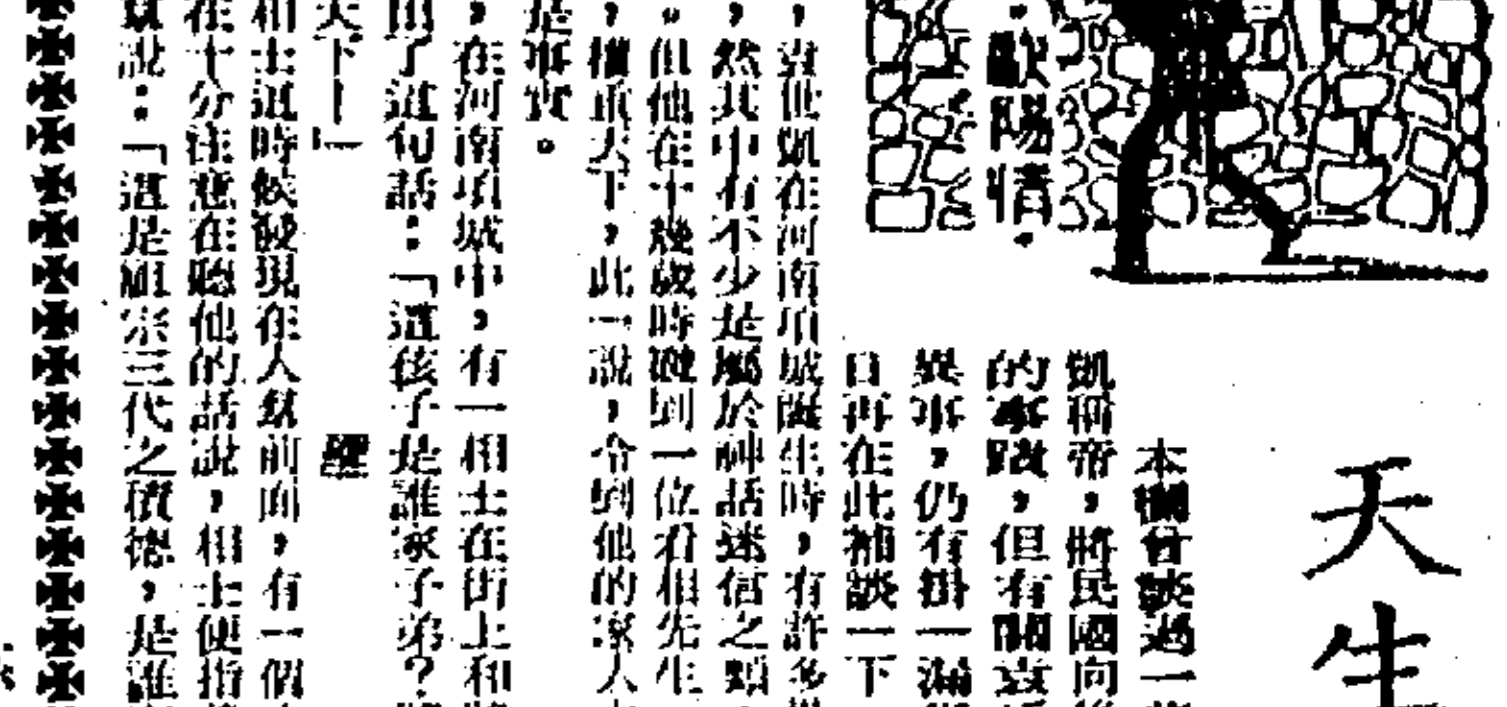 天生
·歐陽情·
本欄曾談過一
凱稱帝，將民國向後
的事蹟，但有關袁
異事，仍有掛一漏
日再在此補談一下
，袁世凱在河南項城誕生時，有許多
，然其中有不少是屬於神話迷信之類，
。但他在十幾歲時碰到一位看相先生
，權重天下，此一說，令到他的家人
是事實。
，在河南項城中，有一相士在街上和
出了這句話：「這孩子是誰家子弟？
天下！」
相士這時候發現在人羣前面，有一個
在十分注意在聽他的話說，相士便指
就說：「這是祖宗三代之積德，是誰